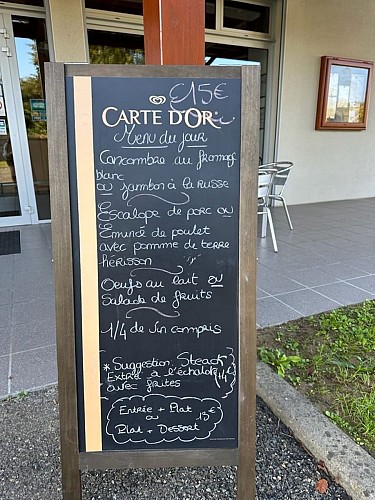 €15€
CARTE D'OR
Menu du jour
Concombre au fromage
blanc
ou jambon à la russe
Escalope de porc ou
Emincé de poulet
avec pomme de terre
hérisson
Oeufs au lait ou
Salade de fruits
1/4 de vin compris
* Suggestion Steack
Extrié à l'échalote
avec frites 14€
Entrée + Plat
ou 13€
Plat + Dessert